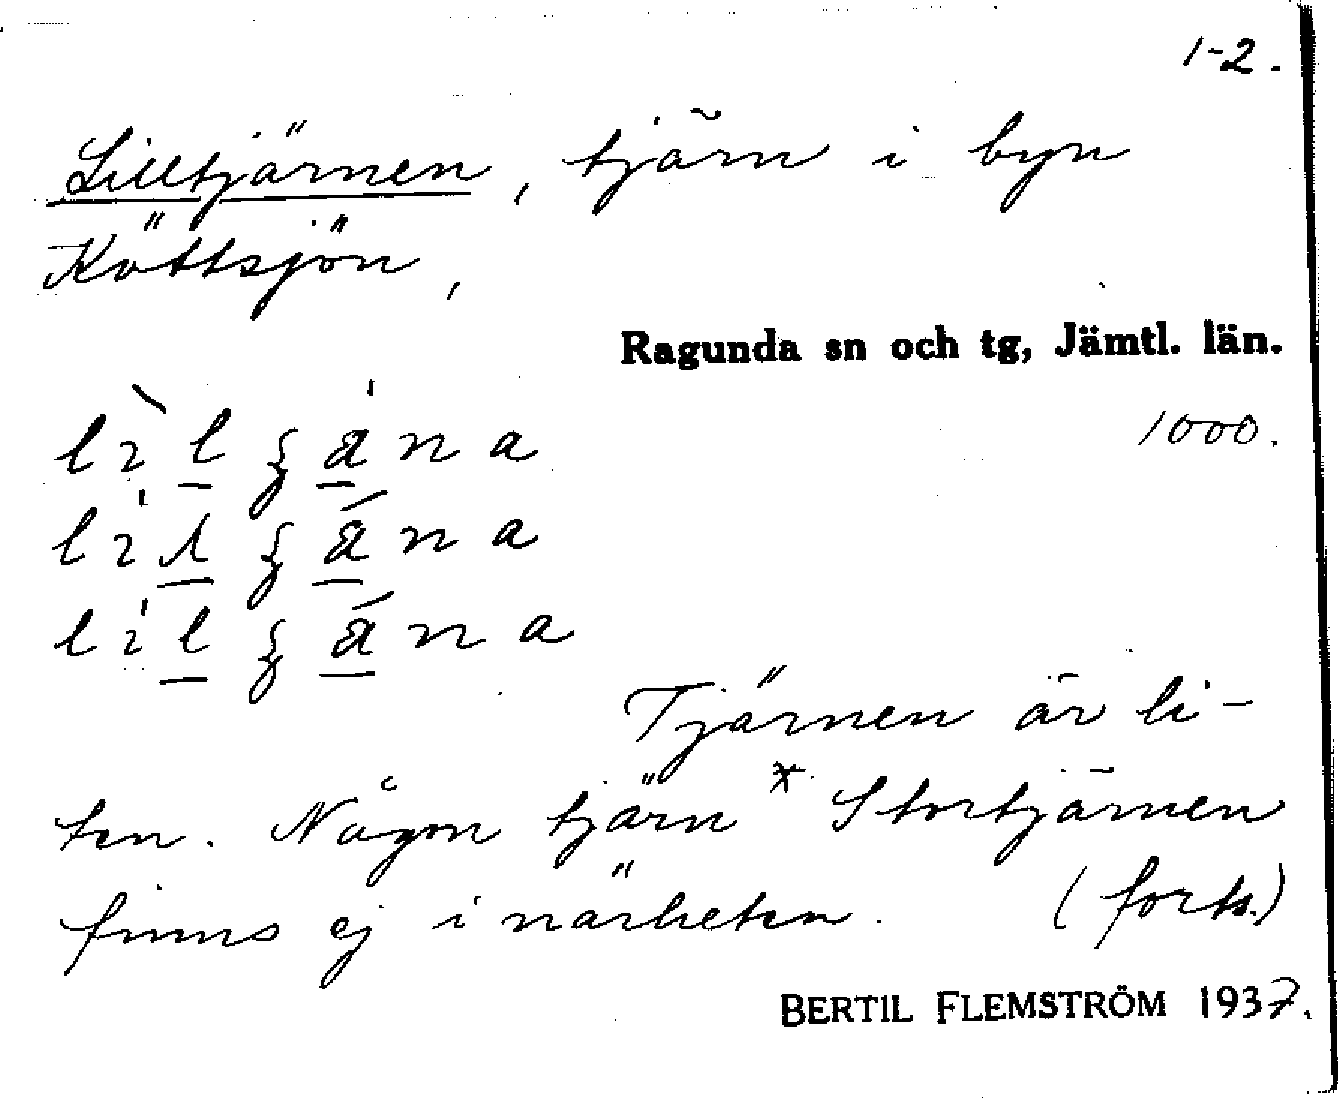 1-2.
Lilltjärnen, tjärn i byn
Köttsjön,
Ragunda sn och tg, Jämtl. län.
1000.
Tjärnen är li-
ten. Någon tjärn * Stortjärnen
finns ej i närheten. (forts.)
BERTIL FLEMSTRÖM 1937.